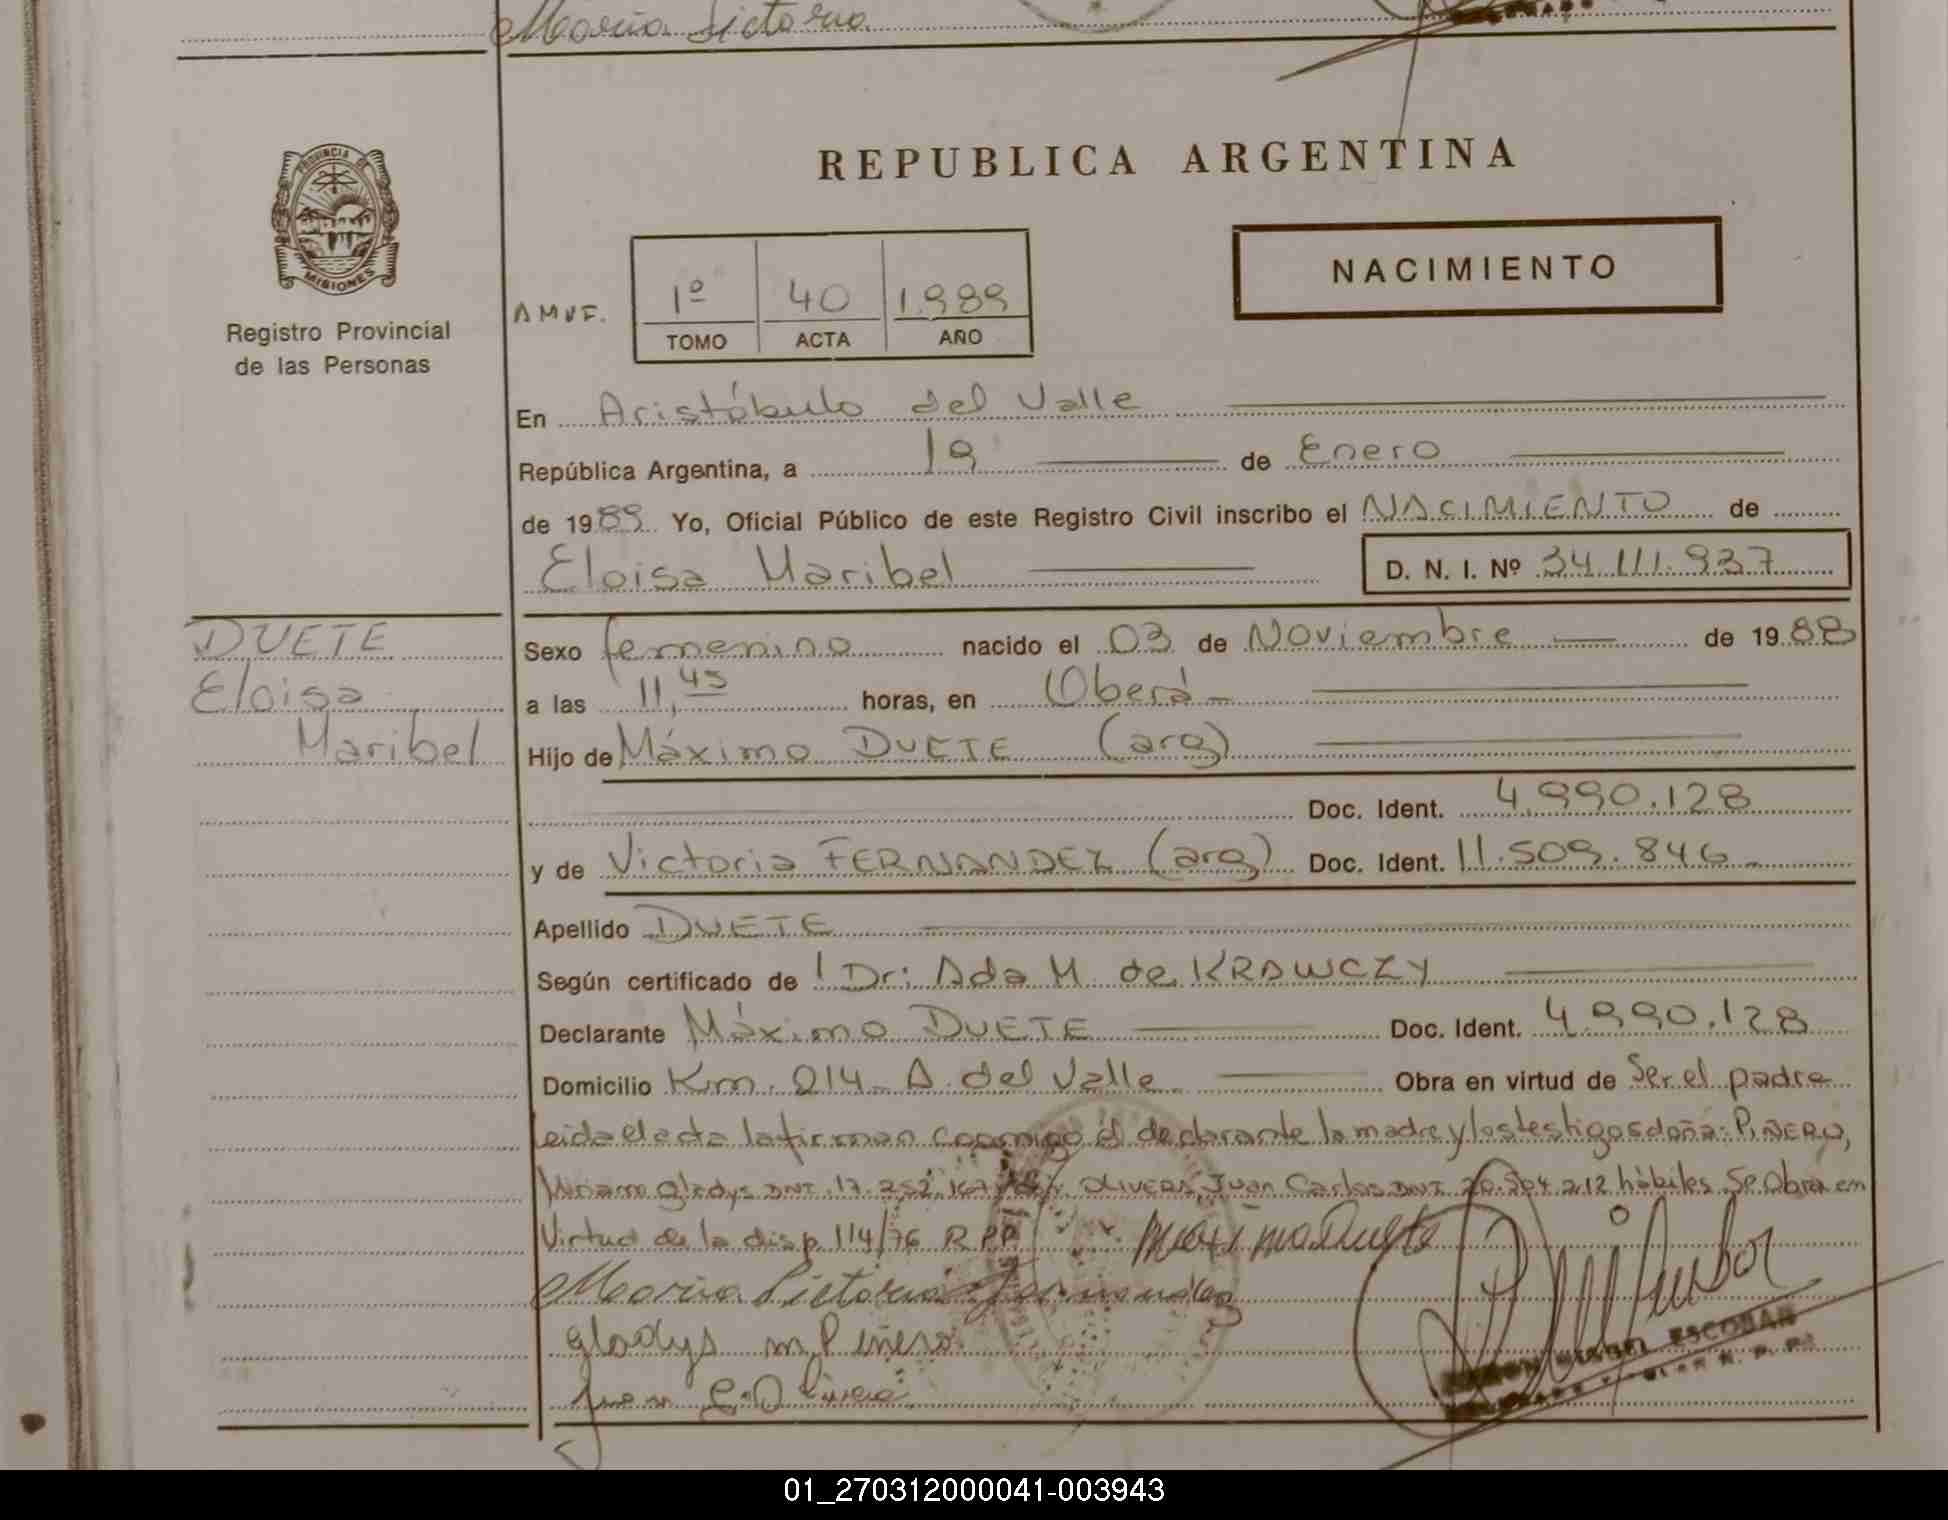 Maria Victoria
REPUBLICA ARGENTINA
PROVINCIA DE
MISIONES
Registro Provincial
de las Personas
NACIMIENTO
1º 40 1.989
TOMO ACTA AÑO
En Aristóbulo del Valle
República Argentina, a 19 de Enero
de 1989 Yo, Oficial Público de este Registro Civil inscribo el NACIMIENTO de
Eloisa Maribel D. N. I. Nº 34.111.937
DUETE
Eloisa
Maribel
Sexo femenino nacido el 03 de Noviembre de 1988
a las 11,45 horas, en Oberá
Hijo de Máximo DUETE (arg)
Doc. Ident. 4.990.128
y de Victoria FERNANDEZ (arg) Doc. Ident. 11.509.846
Apellido DUETE
Según certificado de Dr: Ada M. de KRAWCZY
Declarante Máximo DUETE Doc. Ident. 4.990.128
Domicilio Km. 214 A. del Valle Obra en virtud de Ser el padre
leida el acta la firman conmigo el declarante la madre y los testigos doña: PIÑERO,
Miriam Gladys DNI. 17.252. OLIVERA, Juan Carlos DNI 20.504.212 hábiles. Se Obra en
Virtud de la disp. 114/76 R.P.P. Maximo Duete
Maria Victoria Fernandez
gladys m. Piñero
Juan C. Olivera
ESCOBAR
01_270312000041-003943